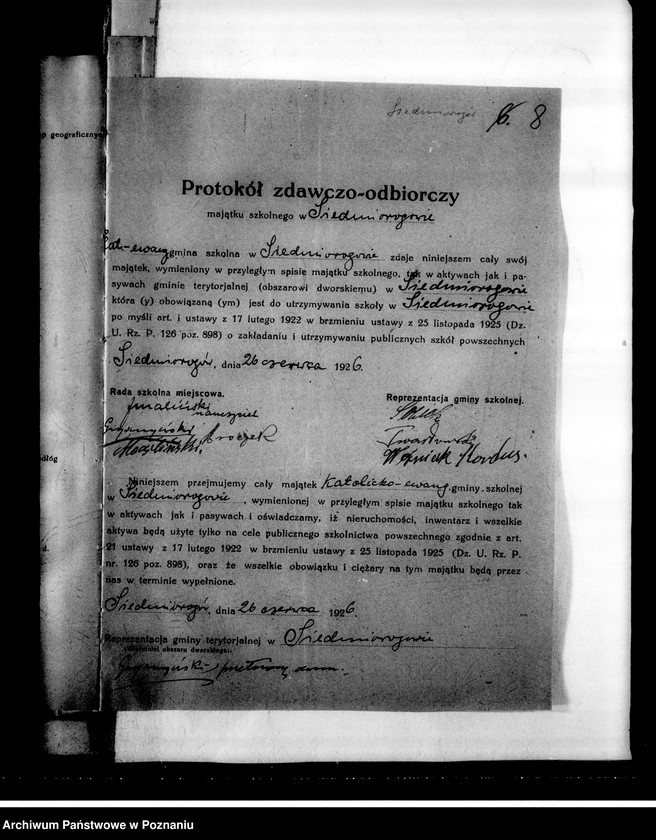 Siedmiorogów 6. 8
p geograficznym
Protokół zdawczo-odbiorczy
majątku szkolnego w Siedmiorogowie
Kat.-ewang gmina szkolna w Siedmiorogowie zdaje niniejszem cały swój
majątek, wymieniony w przyległym spisie majątku szkolnego, tak w aktywach jak i pa-
sywach gminie terytorjalnej (obszarowi dworskiemu) w Siedmiorogowie
która (y) obowiązaną (ym) jest do utrzymywania szkoły w Siedmiorogowie
po myśli art. i ustawy z 17 lutego 1922 w brzmieniu ustawy z 25 listopada 1925 (Dz.
U. Rz. P. 126 poz. 898) o zakładaniu i utrzymywaniu publicznych szkół powszechnych
Siedmiorogów, dnia 26 czerwca 1926.
Rada szkolna miejscowa. Reprezentacja gminy szkolnej.
nauczyciel
Mroczek
Woźniak Kordus.
odłóg
Niniejszem przejmujemy cały majątek Katolicko-ewang. gminy szkolnej
w Siedmiorogowie, wymienionej w przyległym spisie majątku szkolnego tak
w aktywach jak i pasywach i oświadczamy, iż nieruchomości, inwentarz i wszelkie
aktywa będą użyte tylko na cele publicznego szkolnictwa powszechnego zgodnie z art.
21 ustawy z 17 lutego 1922 w brzmieniu ustawy z 25 listopada 1925 (Dz. U. Rz. P.
nr. 126 poz. 898), oraz że wszelkie obowiązku i ciężary na tym majątku będą przez
nas w terminie wypełnione.
Siedmiorogów, dnia 26 czerwca 1926.
Reprezentacja gminy terytorjalnej w Siedmiorogowie
(właściciel obszaru dworskiego)
Archiwum Państwowe w Poznaniu